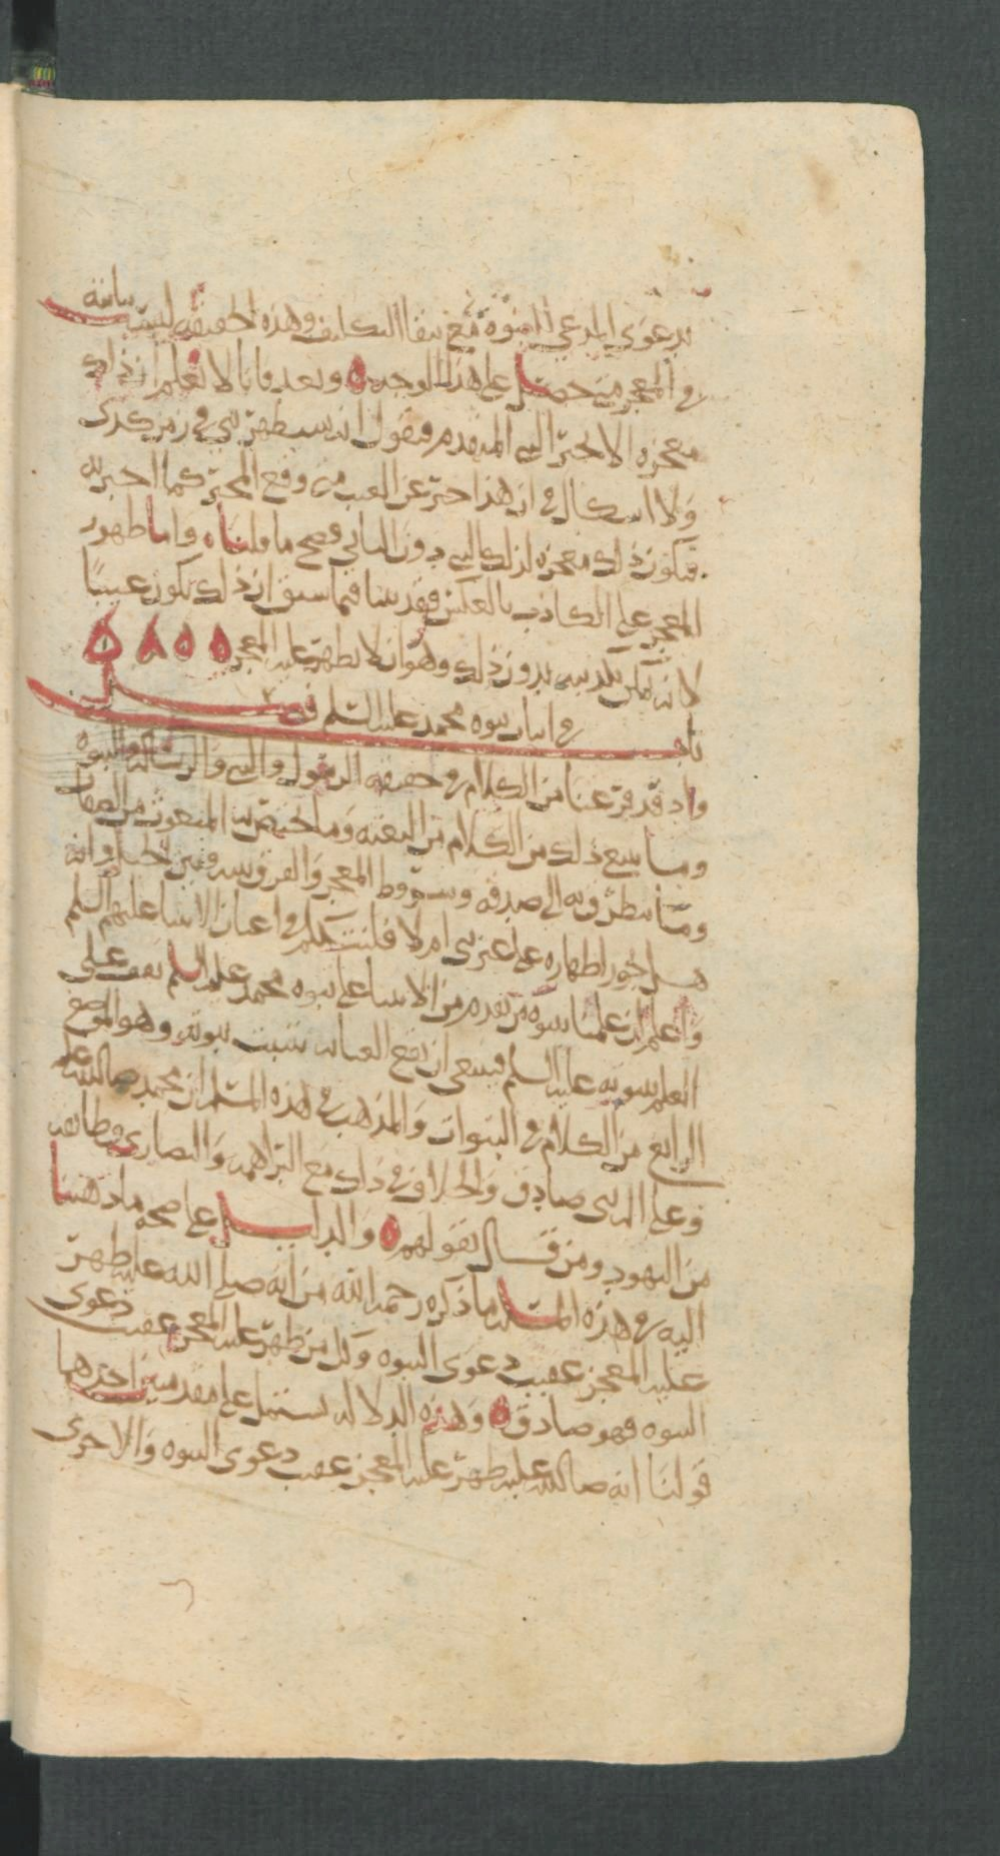 بدعوى المدعي للنبوة مع بقاء التكليف وهذه الحقيقة ليست ثابتة
في المعجز متى حصل على هذا الوجه ه وبعد فانا لا نعلم ان ذلك
معجزه الا لاخبار النبي المتقدم فيقول انه سيظهر نبي في زمن كذى
ولا اشكال في ان هذا خبر عن الغيب متى وقع المخبر كما اخبر به
فيكون ذلك معجزه لذلك النبي دون الثاني وصح ما قلناه واما ظهور
المعجز على الكاذب بالعكس فقد بينا فيما سبق ان ذلك يكون عبثا
لانه يمكن تكذيبه بدون ذلك وهو ان لا يظهر عليه المعجز ه ه ه ه
باب في اثبات نبوه محمد عليه السلم فصل
واذ قد فرغنا من الكلام في حقيقه الرسول والنبي والرساله والنبوه
وما يتبع ذلك من الكلام في البعثه وما يختص به المبعوث من الصفات
وما يتطرق به الى صدقه وشروط المعجز والفرق بينه وبين الحيل وانه
هل يجوز اظهاره على غير نبي ام لا فلنتكلم في اعيان الانبيا عليهم السلم
واعلم ان علمنا بنبوه من تقدم من الانبيا على نبوه محمد عليه السلم يقف على
العلم بنبوته عليه السلم فينبغي ان تقع العنايه بتثبيت نبوته وهو الموضع
الرابع من الكلام في النبوات والمذهب في هذه المسئله ان محمد صلى الله عليه
وعلى اله نبي صادق والخلاف في ذلك مع البراهمه والنصارى وطائفه
من اليهود ومن قال بقولهم ه والدليل على صحه ما ذهبنا
اليه في هذه المسئله ما ذكره رحمه الله من انه صلى الله عليه ظهر
عليه المعجز عقيب دعوى النبوه وكل من ظهر عليه المعجز عقيب دعوى
النبوه فهو صادق ه وهذه الدلاله تشتمل على مقدمتين احدهما
قولنا انه صلى الله عليه ظهر عليه المعجز عقيب دعوى النبوه والاخرى